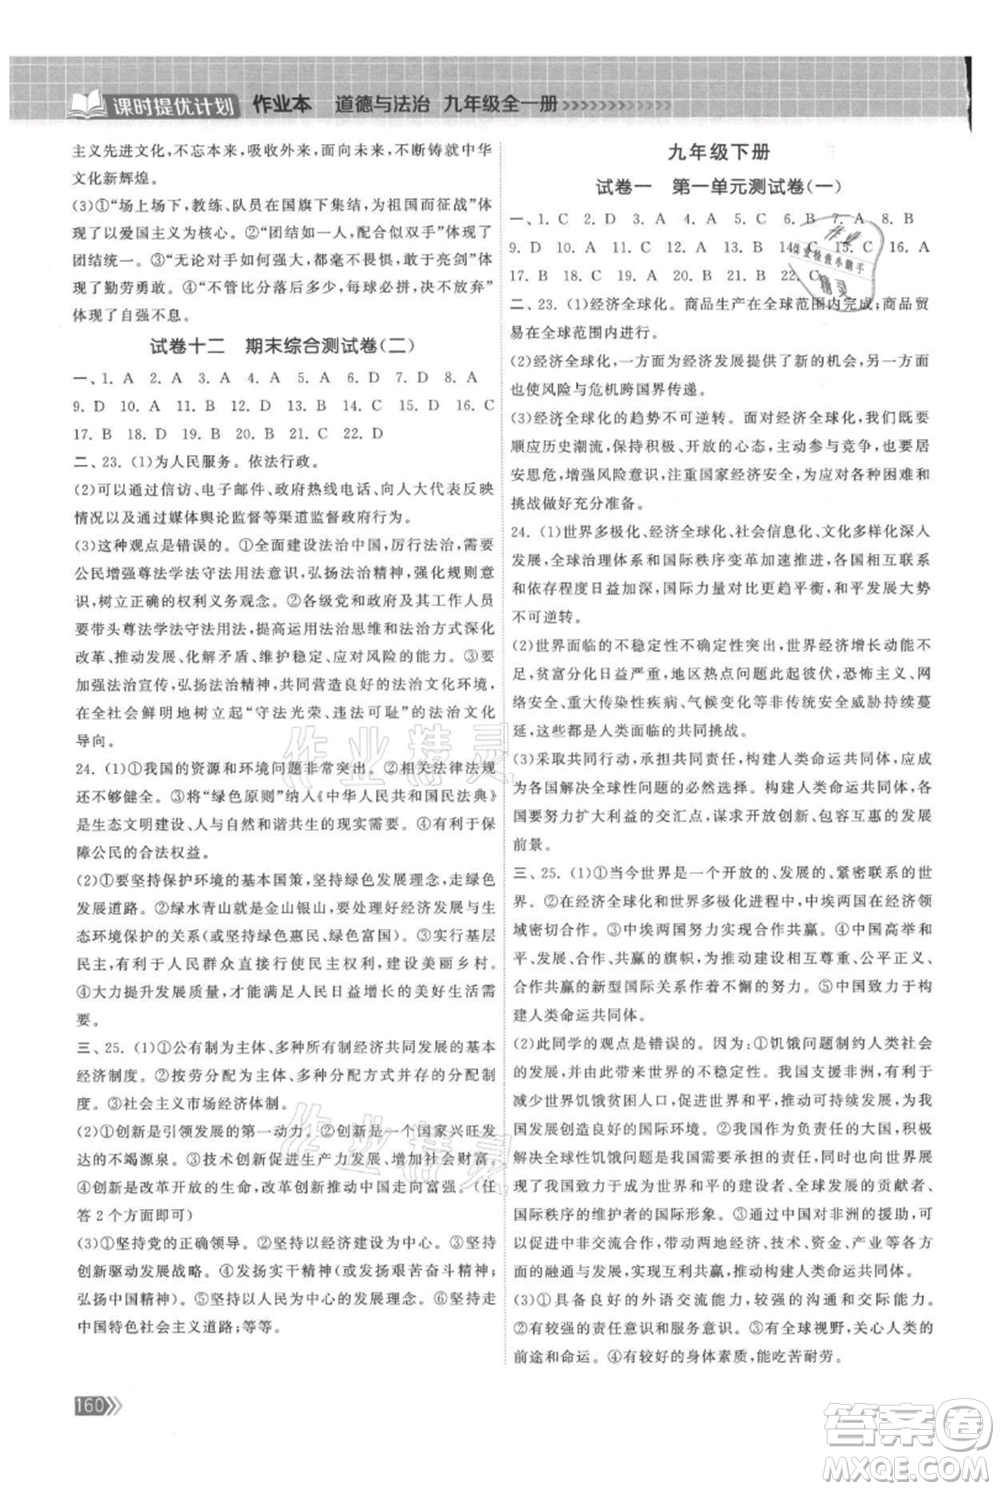 课时提优计划 作业本 道德与法治 九年级全一册
主义先进文化,不忘本来、吸收外来、面向未来,不断铸就中华
文化新辉煌。
(3)①“上场上下,教练、队员在国旗下集结,为祖国征战”体
现了以爱国主义为核心。②“团结如一,配合似双手”体现了
团结统一。③“无论对手如何强大,都毫不畏惧,敢于亮剑”体
现了勤劳勇敢。④“不管比分落后多少,每球必拼,战斗到底”
体现了自强不息。
试卷十二 期末综合测试卷(二)
一、1. A 2. A 3. A 4. C 5. B 6. A 7. D 8. A
9. D 10. A 11. A 12. B 13. D 14. B 15. A 16. C
17. B 18. D 19. D 20. B 21. C 22. D
二、23. (1)为人民服务。依法行政。
(2)可以通过信访、电子邮件、政府热线电话、向人大代表反映
情况以及通过媒体舆论监督等渠道监督政府行为。
(3)这种观点是错误的。①全面建设法治中国,厉行法治,需要
公民增强尊法学法守法用法意识,弘扬法治精神,强化规则意
识,树立正确的权利义务观念。②各级党和政府及其工作人员
要带头尊法学法守法用法,带头运用法治思维和法治方式深化
改革、推动发展、化解矛盾、维护稳定、应对风险的能力。③要
加强法治宣传,弘扬法治精神,共同营造良好的法治环境,
在全社会鲜明地树立起“守法光荣、违法可耻”的法治文化
导向。
24. (1)①我国的资源和环境问题非常突出。②相关法律法规
还不够健全。③将“绿色原则”纳入《中华人民共和国民法典》
是生态文明建设、人与自然和谐共生的体现。④有利于更好保
障公民的合法权益。
(2)①要坚持保护环境的基本国策,坚持绿色发展理念,走绿色
发展道路。②绿水青山就是金山银山,要处理好经济发展与生
态环境保护的关系(或坚持绿色惠民、绿色富国)。③实行基层
民主,有利于凝聚人民群众直接行使民主权利,建设美丽乡村。
④大力提升发展质量,才能满足人民日益增长的美好生活需
要。
三、25. (1)①公有制为主体、多种所有制经济共同发展的基本
经济制度。②按劳分配为主体、多种分配方式并存的分配制
度。③社会主义市场经济体制。
(2)①创新是引领发展的第一动力。②创新是一个国家兴旺发
达的不竭源泉。③技术创新促进生产力发展、增加社会财富。
④创新是改革开放的生命,改革创新推动中国走向富强。(任
答2个方面即可)
(3)①坚持党的正确领导。②坚持以经济建设为中心。③坚持
创新驱动发展战略。④发扬实干精神(或发扬艰苦奋斗精神、
弘扬中国精神)。⑤坚持以人民为中心的发展思想。⑥坚持走
中国特色社会主义道路;等等。
160
九年级下册
试卷一 第一单元测试卷(一)
一、1. C 2. D 3. A 4. D 5. C 6. B 7. A 8. B
9. D 10. D 11. A 12. B 13. C 14. C 15. C 16. A
17. B 18. B 19. D 20. D 21. B 22. C
二、23. (1)经济全球化。商品生产在全球范围内完成;商品贸
易在全球范围内进行。
(2)经济全球化,一方面为经济发展提供了新的机会,另一方面
也使风险与危机跨国界传递。
(3)经济全球化的趋势不可逆转。面对经济全球化,我们要
顺应历史潮流,保持积极、开放的心态,主动参与竞争,也要居
安思危,增强风险意识,注重国家经济安全,为应对各种困难和
挑战做好充分准备。
24. (1)世界多极化、经济全球化、社会信息化、文化多样化深入
发展,全球治理体系和国际秩序变革加速推进,各国相互联系
和依存程度日益加深,国际力量对比更趋平衡,和平发展大势
不可逆转。
(2)世界面临的不稳定性不确定性突出,世界经济增长动能不
足,贫富分化日益严重,地区热点问题此起彼伏,恐怖主义、网
络安全、重大传染性疾病、气候变化等非传统安全威胁持续蔓
延,这些都是人类面临的共同挑战。
(3)采取共同行动,承担共同责任,构建人类命运共同体,是
各国解决全球性问题的必然选择。构建人类命运共同体,各
国要努力扩大利益的交汇点,谋求开放创新、包容互惠的发展
前景。
三、25. (1)①当今世界是一个开放的、发展的、紧密联系的世
界。②在经济全球化和世界多极化深入发展,中埃两国在经济领
域密切合作。③中埃两国努力实现合作共赢。④中国高举和
平、发展、合作、共赢的旗帜,为推动建设相互尊重、公平正义、
合作共赢的新型国际关系作着不懈的努力。⑤中国致力于构
建人类命运共同体。
(2)此同学的观点是错误的。①饥饿问题制约人类社会
的和平与发展,影响世界的稳定。我国支援非洲,有利于
减少世界饥饿贫困人口,促进世界和平,推动可持续发展,为
国家发展创造良好的国际环境。②我国为非洲提供帮助,有助于
展示我国积极有为、勇于担当、世界和平的建设者、全球发展的贡献者、
国际秩序的维护者的国际形象。③通过中国对非洲的援助,
实现中非交流合作,带动两地经济、技术、资金、产业等方面
的融通与发展,实现互利共赢,推动构建人类命运共同体。
(3)①具备良好的外语交流能力,较强的沟通和交际能力。
②有较强的责任意识和服务意识。③有全球视野,关心人类的
前途和命运。④有较好的身体素质,能吃苦耐劳。
作业精灵
作业精灵
答案圈
MXQE.COM